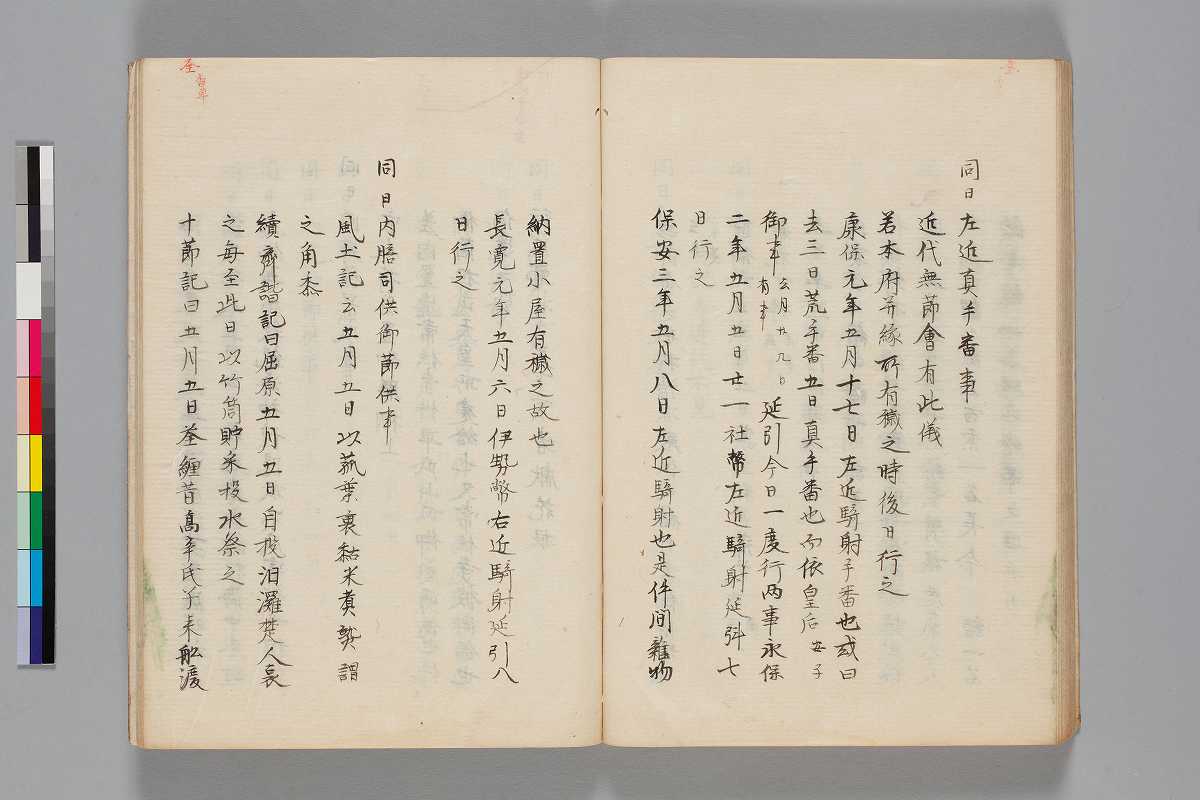 同日左近真手番事
近代無節會有此儀
若本府并縁所有穢之時後日行之
康保元年五月十七日左近騎射手番也或曰
去三日荒手番五日真手番也而依皇后安子
御事去月廿九日有事延引今日一度行両事永保
二年五月五日廿一社幣左近騎射延引七
日行之
保安三年五月八日左近騎射也是件間雑物
納置小屋有穢之故也
長寛元年五月六日伊勢幣右近騎射延引八
日行之
同日内膳司供御節供事
風土記云五月五日以菰葉裹黏米煮熟謂
之角黍
續齊諧記曰屈原五月五日自投汨羅楚人哀
之毎至此日以竹筒貯米投水祭之
十節記曰五月五日纏昔高辛氏子乗舩渡